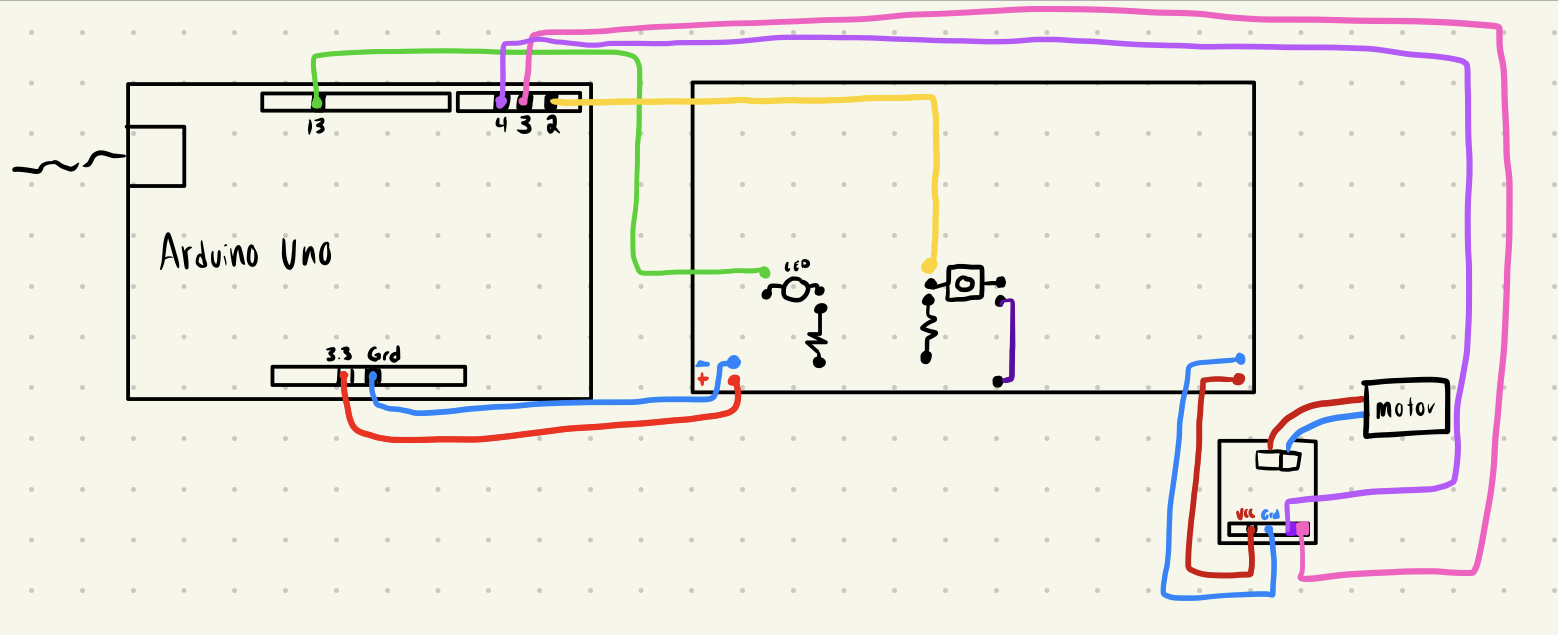 13
4 3 2
Arduino Uno
LED
3.3 Grd
-
+
Motor
VCC Grd